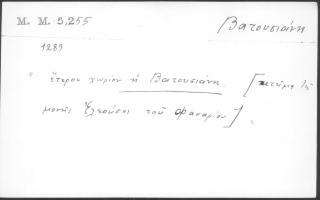 M. M. 5,255
Βατουσιάνη
1289
" ἕτερον χωρίον ἡ Βατουσιάνη. [μετόχι τῆς
μονῆς Ἐλεούσης τοῦ Φαναρίου].